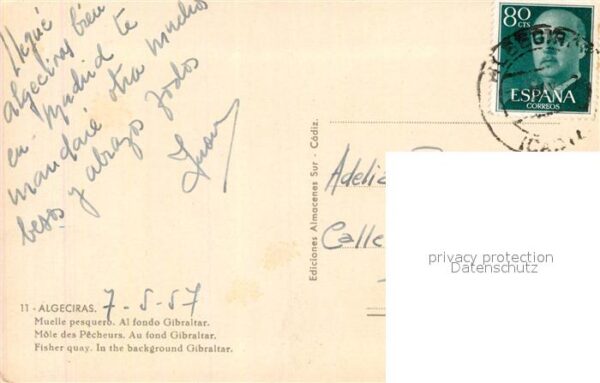 Llegué
algeciras bien
en Madrid te
mandaré otra muchos
besos y abrazos Todos
Juan
80
CTS
ESPAÑA
CORREOS
ALGECIRAS
(CADIZ
Ediciones Almacenes Sur - Cádiz.
Adelia
Calle
privacy protection
Datenschutz
11 - ALGECIRAS. 7-5-57
Muelle pesquero. Al fondo Gibraltar.
Môle des Pêcheurs. Au fond Gibraltar.
Fisher quay. In the background Gibraltar.